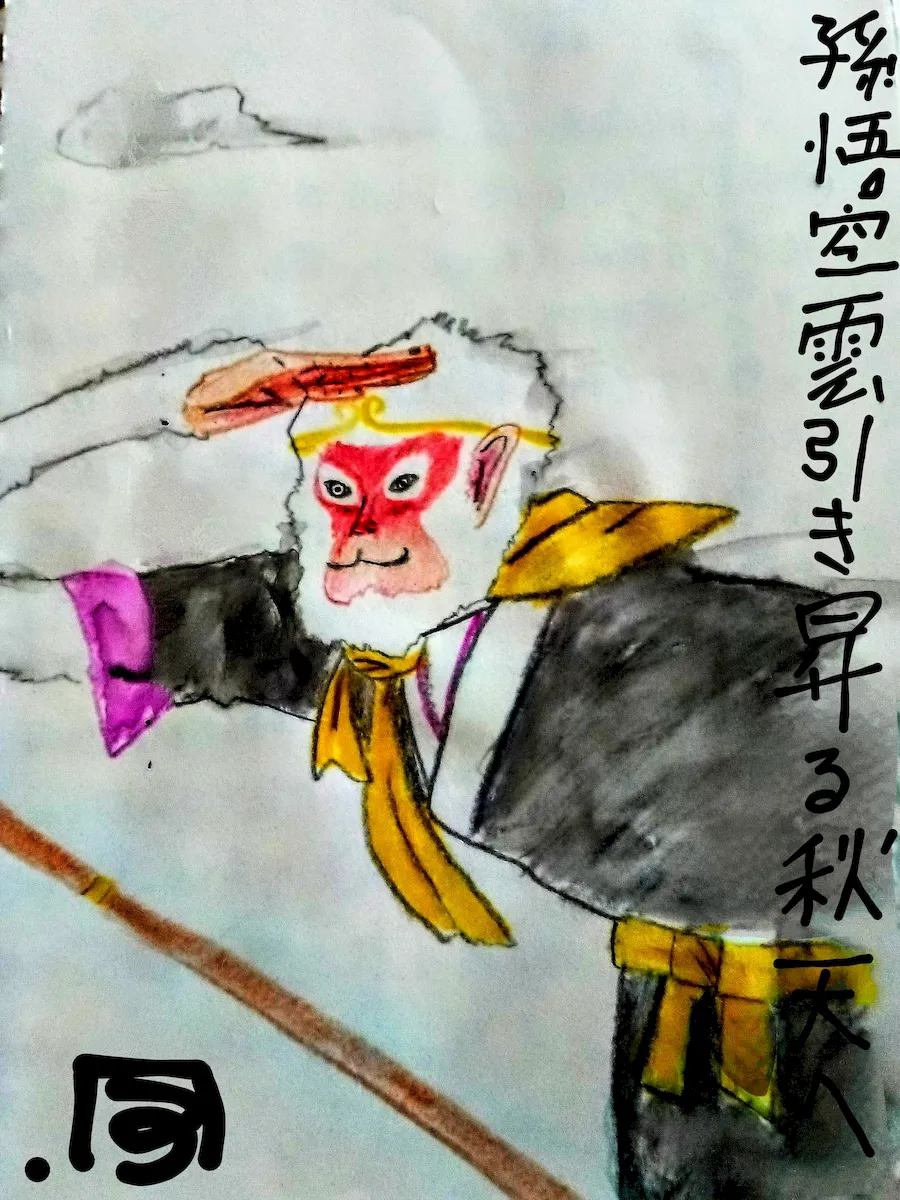 孫悟空雲引き昇る秋天へ